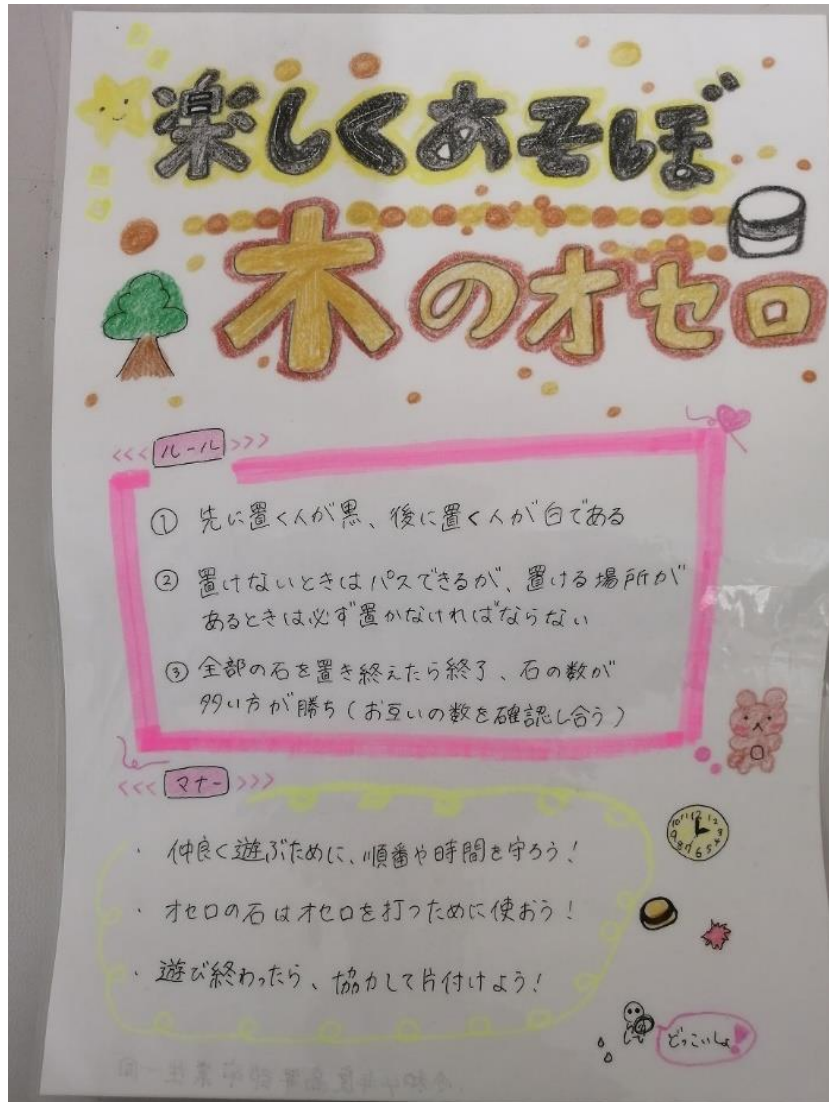 楽しくあそぼ
木のオセロ
<<<ルール>>>
① 先に置く人が黒、後に置く人が白である
② 置けないときはパスできるが、置ける場所が
あるときは必ず置かなければならない
③ 全部の石を置き終えたら終了、石の数が
多い方が勝ち(お互いの数を確認し合う)
<<<マナー>>>
・仲良く遊ぶために、順番や時間を守ろう!
・オセロの石はオセロを打つために使おう!
・遊び終わったら、協力して片付けよう!
どっこいしょ